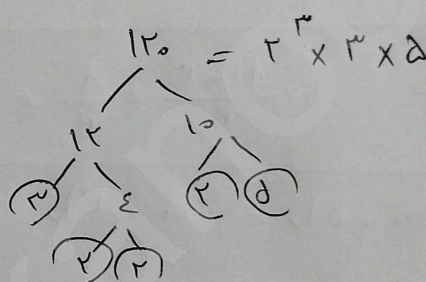 ۱۲۰ = ۲^۳ × ۳ × ۵
۱۲ ۱۰
۳ ٤ ۲ ۵
۲ ۲